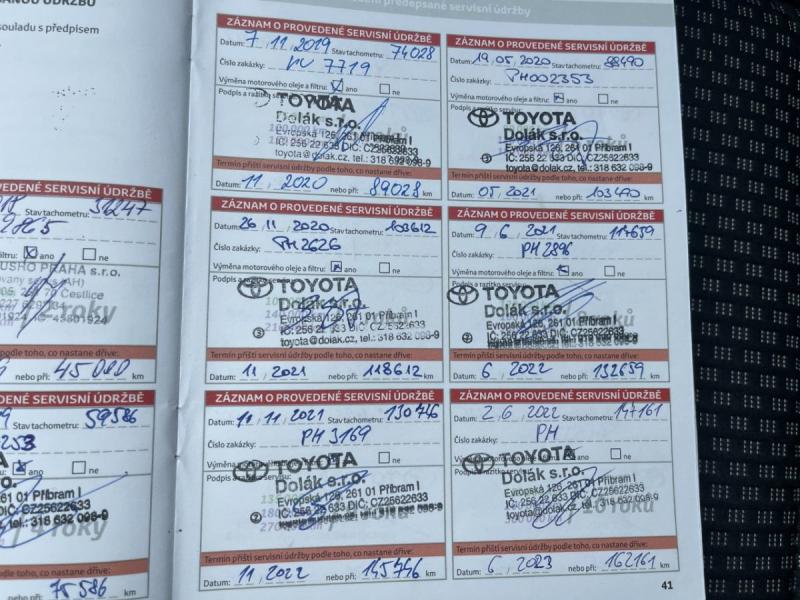 ANOU ÚDRŽBU
souladu s předpisem
EDENÉ SERVISNÍ ÚDRŽBĚ
Stav tachometru:
ano ne
USHO PRAHA s.r.o.
Čestlice
roky
podle toho, co nastane dříve:
nebo při: 45000 km
DENÉ SERVISNÍ ÚDRŽBĚ
Stav tachometru: 59586
253
ano ne
61 01 Příbram I
CZ25622633
tel.: 318 632 098-9
roky
podle toho, co nastane dříve:
nebo při: 75586 km
předepsané servisní údržby
ZÁZNAM O PROVEDENÉ SERVISNÍ ÚDRŽBĚ
Datum: 7, 11, 2019 Stav tachometru: 74028
Číslo zakázky: 7719
Výměna motorového oleje a filtru: ano ne
Podpis a razítko servisu:
TOYOTA
Dolák s.r.o.
Evropská 126, 261 01 Příbram I
IČ: 256 22 633 DIČ: CZ25622633
toyota@dolak.cz, tel.: 318 632 098-9
Termín příští servisní údržby podle toho, co nastane dříve:
Datum: 11, 2020 nebo při: 89028 km
ZÁZNAM O PROVEDENÉ SERVISNÍ ÚDRŽBĚ
Datum: 19, 05, 2020 Stav tachometru: 88490
Číslo zakázky: PH002353
Výměna motorového oleje a filtru: ano ne
Podpis a razítko servisu:
TOYOTA
Dolák s.r.o.
Evropská 126, 261 01 Příbram I
IČ: 256 22 633 DIČ: CZ25622633
toyota@dolak.cz, tel.: 318 632 098-9
Termín příští servisní údržby podle toho, co nastane dříve:
Datum: 05, 2021 nebo při: 103490 km
ZÁZNAM O PROVEDENÉ SERVISNÍ ÚDRŽBĚ
Datum: 26, 11, 2020 Stav tachometru: 103612
Číslo zakázky: PH2626
Výměna motorového oleje a filtru: ano ne
Podpis a
TOYOTA
Dolák s.r.o.
Evropská 126, 261 01 Příbram I
IČ: 256 22 633 DIČ: CZ25622633
toyota@dolak.cz, tel.: 318 632 098-9
Termín příští servisní údržby podle toho, co nastane dříve:
Datum: 11, 2021 nebo při: 118612 km
ZÁZNAM O PROVEDENÉ SERVISNÍ ÚDRŽBĚ
Datum: 9, 6, 2021 Stav tachometru: 117659
Číslo zakázky: PH 2896
Výměna motorového oleje a filtru: ano ne
Podpis a
TOYOTA
Dolák s.r.o.
Evropská 126, 261 01 Příbram I
IČ: 256 22 633 DIČ: CZ25622633
Termín příští servisní údržby podle toho, co nastane dříve:
Datum: 6, 2022 nebo při: 132659 km
ZÁZNAM O PROVEDENÉ SERVISNÍ ÚDRŽBĚ
Datum: 11, 11, 2021 Stav tachometru: 130746
Číslo zakázky: PH 3169
ne
Podpis a
TOYOTA
Dolák s.r.o.
Evropská 126, 261 01 Příbram I
IČ: 256 22 633 DIČ: CZ25622633
Termín příští servisní údržby podle toho, co nastane dříve:
Datum: 11, 2022 nebo při: 145746 km
ZÁZNAM O PROVEDENÉ SERVISNÍ ÚDRŽBĚ
Datum: 2, 6, 2022 Stav tachometru: 147161
Číslo zakázky: PH
ne
TOYOTA
Dolák s.r.o.
Evropská 126, 261 01 Příbram I
IČ: 256 22 633 DIČ: CZ25622633
toyota@dolak.cz, tel.: 318 632 098-9
roků
Termín příští servisní údržby podle toho, co nastane dříve:
Datum: 6, 2023 nebo při: 162161 km
41